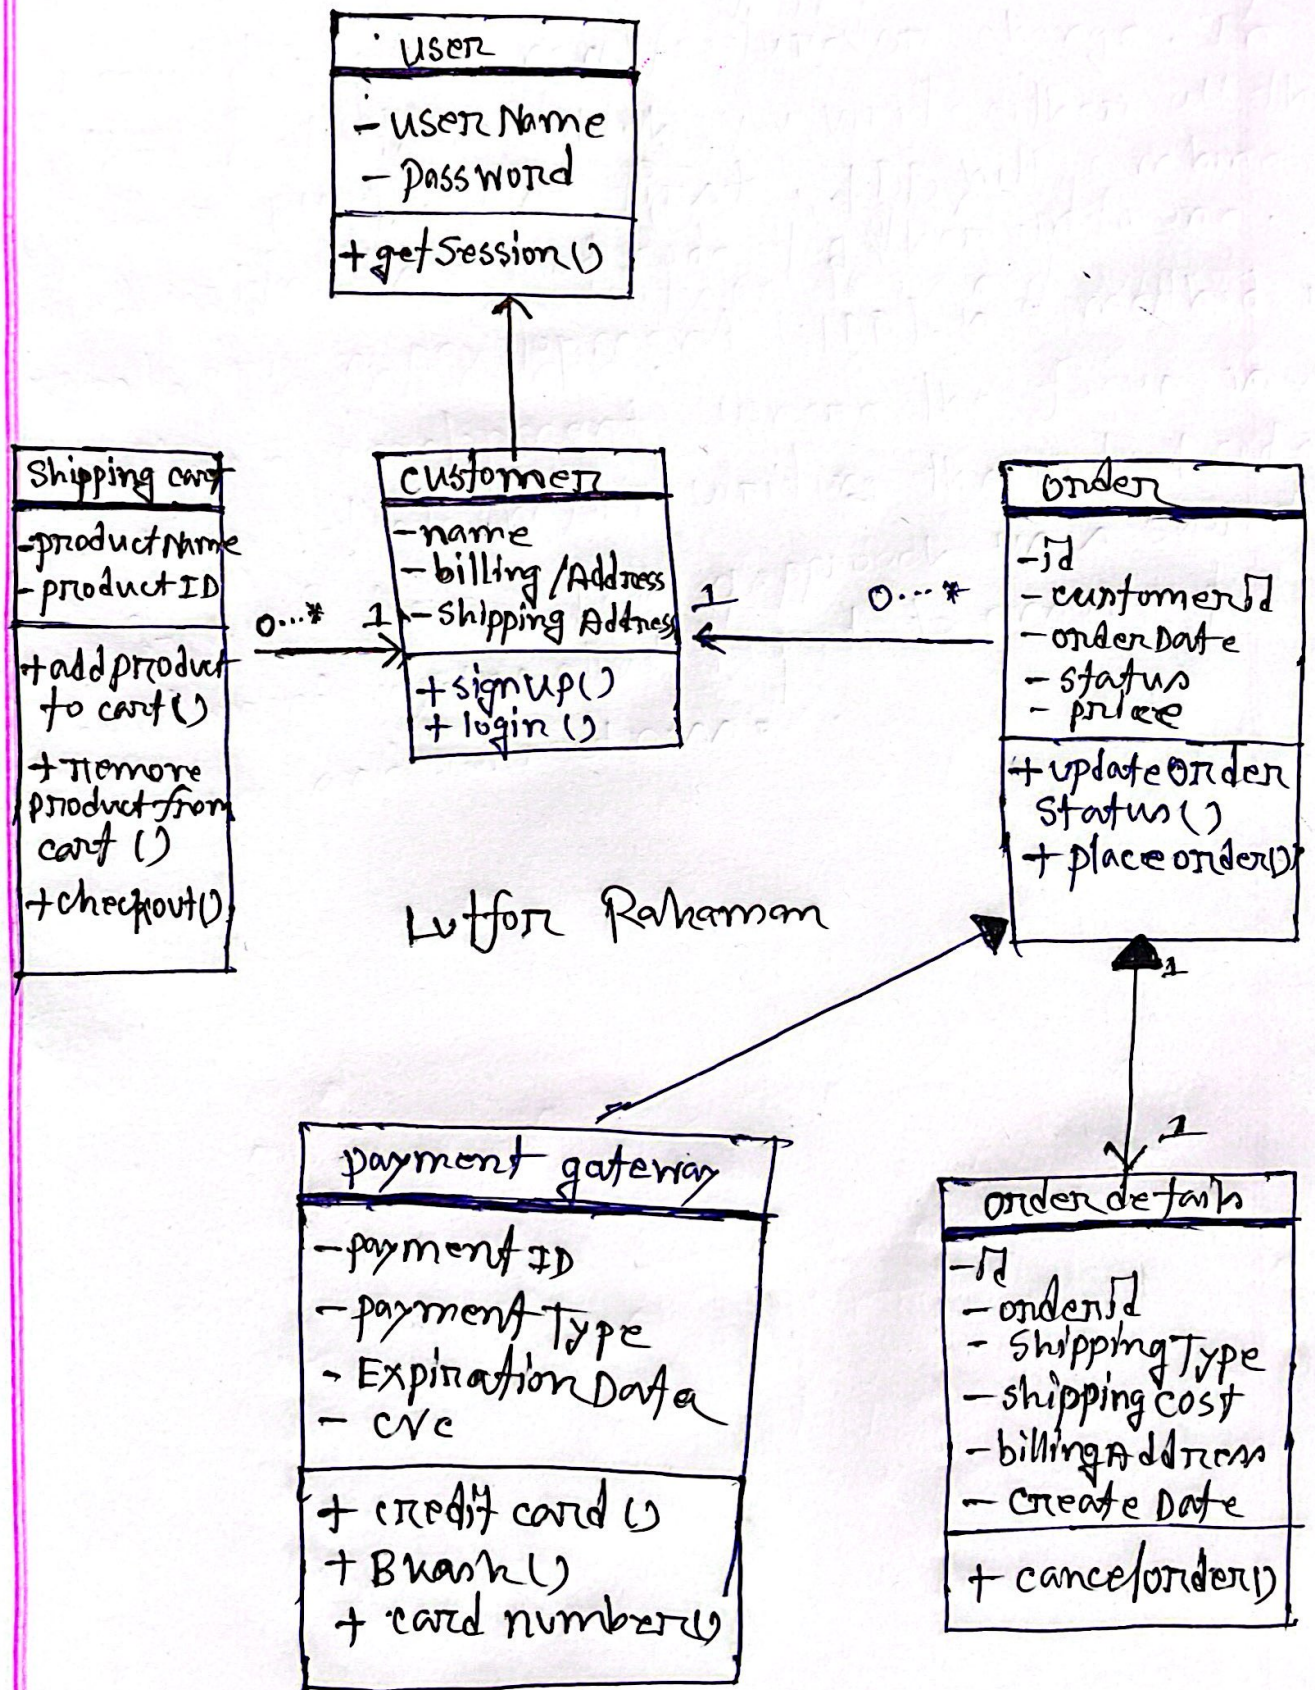 user
- userName
- password
+ getSession()
Shipping cart
- productName
- productID
+ add product
to cart()
+ remove
product from
cart ()
+ checkout()
0...*
1
customer
- name
- billing /Address
- Shipping Address
+ signup()
+ login ()
1
0...*
order
- id
- customerid
- orderDate
- status
- price
+ update order
Status()
+ place order()
Lutfor Rahaman
1
1
payment gateway
- payment ID
- payment Type
- Expiration Data
- cvc
+ credit card ()
+ Bkash()
+ card number()
order details
- id
- orderid
- Shipping Type
- shipping cost
- billing Address
- Create Date
+ cancel order()